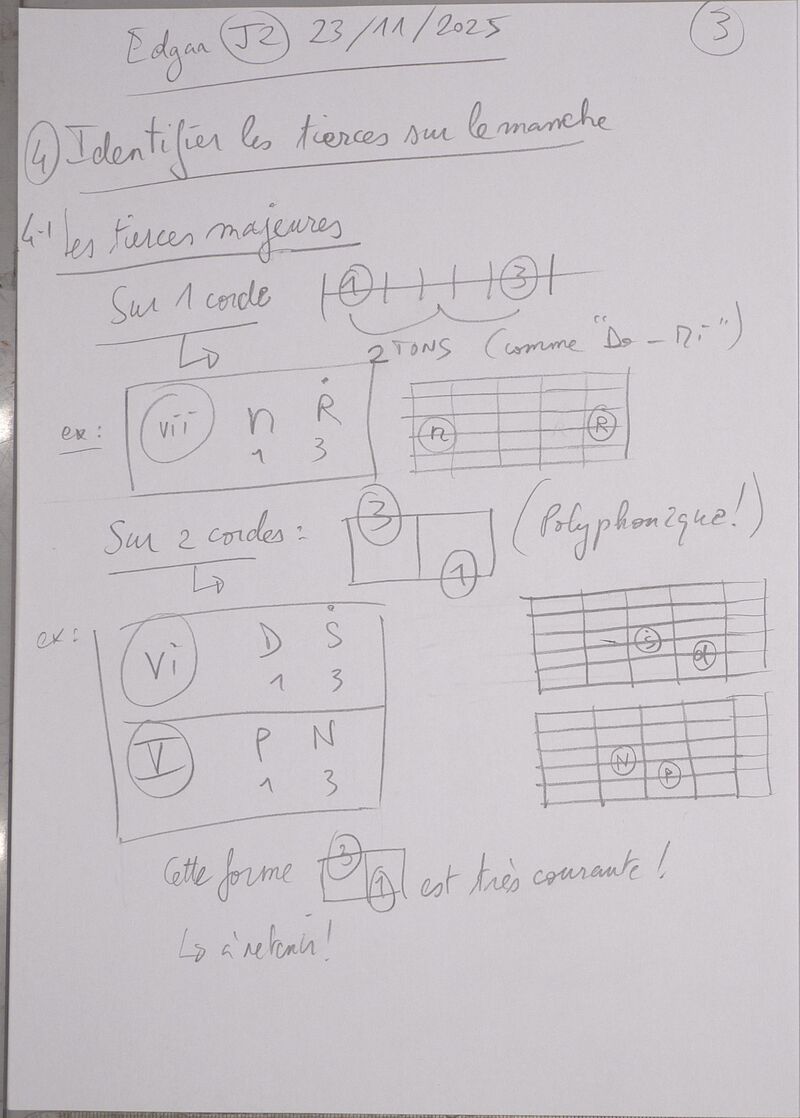 Edgar J2 23/11/2025
3
4 Identifier les tierces sur le manche
4-1 Les tierces majeures
Sur 1 corde
1 3
2 TONS (comme "Do - Mi")
ex:
vii n Ṙ
1 3
n R
Sur 2 cordes:
3
1
(Polyphonique!)
ex:
Vi D Ṡ
1 3
V P N
1 3
N P
Cette forme 3 1 est très courante!
↳ à retenir!